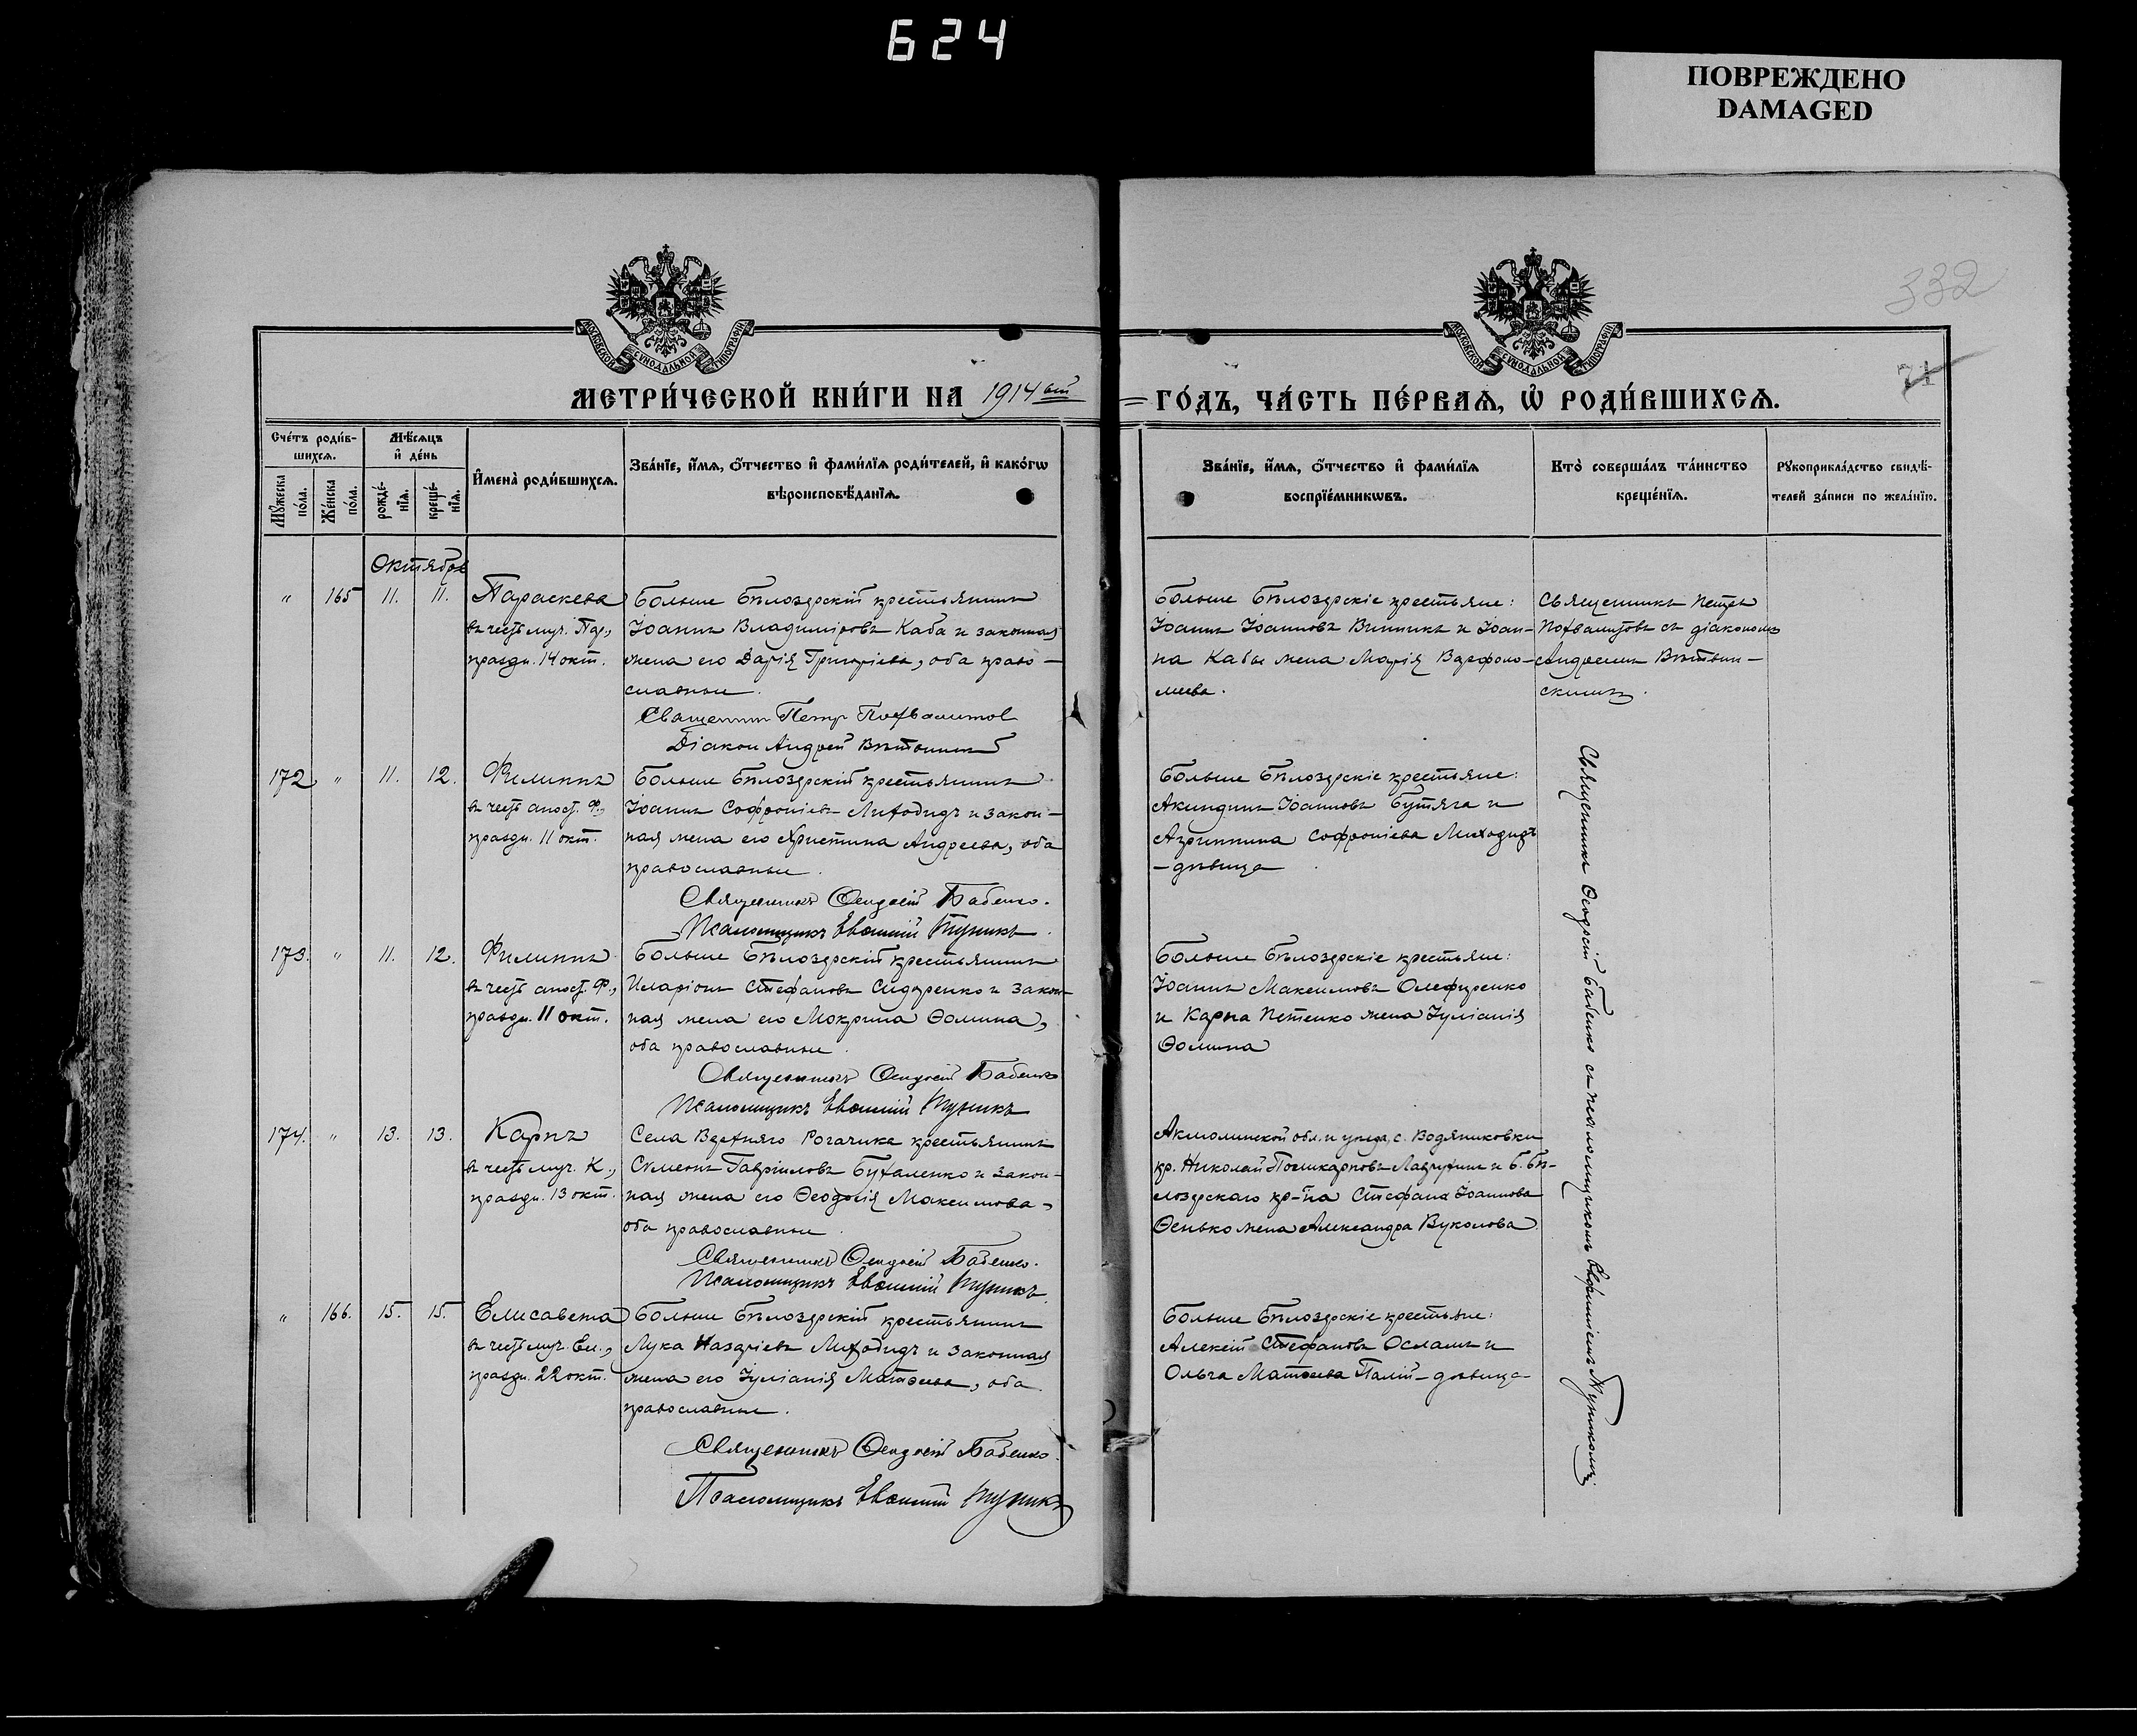 624
ПОВРЕЖДЕНО
DAMAGED
332
71
МОСКОВСКОЙ СѴНОДАЛЬНОЙ ТИПОГРАФІИ
МОСКОВСКОЙ СѴНОДАЛЬНОЙ ТИПОГРАФІИ
МЕТРИ́ЧЕСКОЙ КНИ́ГИ НА 1914 ый
ГО́ДЪ, ЧА́СТЬ ПЕ́РВАѦ, Ѡ҆ РОДИ́ВШИХСѦ.
Сче́тъ роди́в-
шихсѧ.
Мꙋ́жеска по́ла.
Же́нска по́ла.
Мѣ́сѧцъ
и҆ де́нь
рожде́-
нїѧ.
креще́-
нїѧ.
И҆мена̀ роди́вшихсѧ.
Зва́нїе, и҆́мѧ, ѻ҆́тчество и҆ фами́лїѧ роди́телей, и҆ како́гѡ
вѣроисповѣ́данїѧ.
Зва́нїе, и҆́мѧ, ѻ҆́тчество и҆ фами́лїѧ
воспрїе́мникѡвъ.
Кто̀ соверша́лъ та́инство
креще́нїѧ.
Рꙋкоприкла́дство свидѣ́-
телей за́писи по жела́нїю.
Октябрь
" 165 11. 11.
Параскева
въ честь муч. Пар.,
праздн. 14 окт.
Больше Бѣлозерскій крестьянинъ
Іоаннъ Владиміровъ Каба и законная
жена его Дарія Григоріева, оба право-
славные.
Священник Петр Похвалитов
Діакон Андрей Вѣтвинскій
Больше Бѣлозерскіе крестьяне:
Іоаннъ Іоанновъ Винникъ и Іоан-
на Кабы жена Марія Варфоло-
меева.
Священникъ Петръ
Похвалитовъ съ діакономъ
Андреемъ Вѣтвин-
скимъ.
172 " 11. 12.
Филиппъ
въ честь апост. Ф.,
праздн. 11 окт.
Больше Бѣлозерскій крестьянинъ
Іоаннъ Софроніевъ Лиходидъ и закон-
ная жена его Христина Андреева, оба
православные.
Священникъ Ѳеодосій Бабенко.
Псаломщикъ Евѳимій Тупикъ.
Больше Бѣлозерскіе крестьяне:
Акиндинъ Іоанновъ Бутяга и
Агриппина Софроніева Лиходидъ
- дѣвица
173. " 11. 12.
Филиппъ
въ честь апост. Ф.,
праздн. 11 окт.
Больше Бѣлозерскій крестьянинъ
Иларіонъ Стефановъ Сидоренко и закон-
ная жена его Мокрина Ѳомина,
оба православные.
Священникъ Ѳеодосій Бабенко
Псаломщикъ Евѳимій Тупикъ
Больше Бѣлозерскіе крестьяне:
Іоаннъ Максимовъ Олефиренко
и Карпа Петенко жена Іуліанія
Ѳомина
174. " 13. 13.
Карпъ
въ честь муч. К.,
праздн. 13 окт.
Села Верхняго Рогачика крестьянинъ
Сѵмеонъ Гавріиловъ Бухаленко и закон-
ная жена его Ѳеодосія Максимова,
оба православные.
Священникъ Ѳеодосій Бабенко.
Псаломщикъ Евѳимій Тупикъ
Акмолинской обл. и уѣзда, с. Водяниковки
кр. Николай Поликарповъ Лаврухин и Б. Бѣ-
лозерскаго кр-на Стефана Іоаннова
Ѳенько жена Александра Вуколова
" 166. 15. 15.
Елисавета
въ честь муч. Ел.,
праздн. 22 окт.
Больше Бѣлозерскій крестьянинъ
Лука Назаріевъ Лиходидъ и законная
жена его Іуліанія Матѳеева, оба
православные.
Священникъ Ѳеодосій Бабенко.
Псаломщикъ Евѳимій Тупикъ
Больше Бѣлозерскіе крестьяне:
Алексій Стефановъ Осламъ и
Ольга Матѳеева Палій - дѣвица
Священникъ Ѳеодосій Бабенко съ псаломщикомъ Евфиміемъ Тупикомъ.